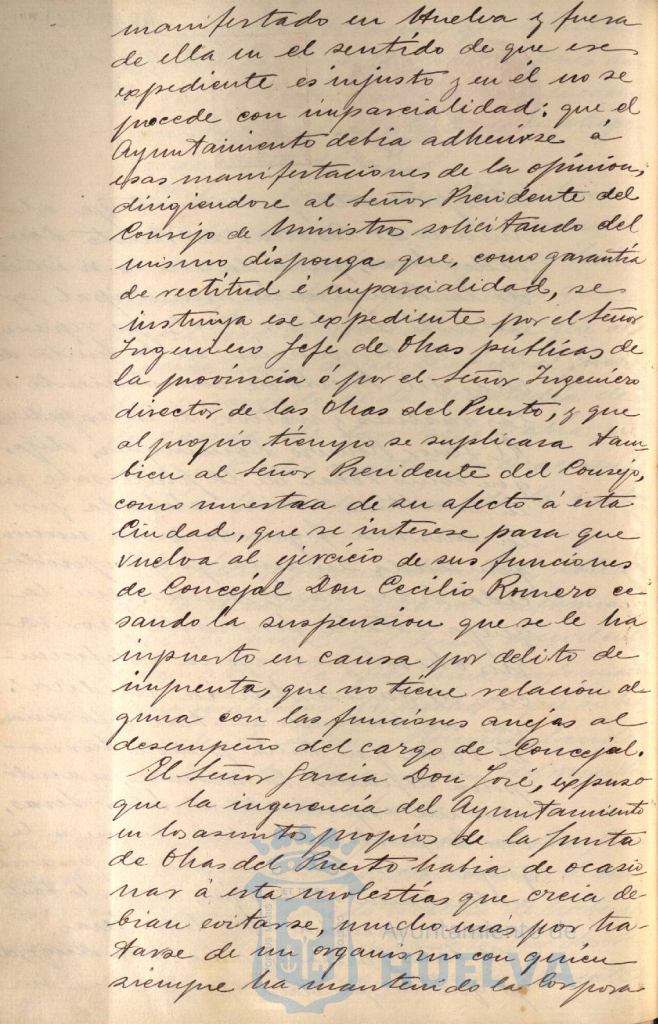 manifestado en Huelva y fuera
de ella en el sentido de que ese
expediente es injusto y en él no se
procede con imparcialidad: que el
Ayuntamiento debia adherirse á
esas manifestaciones de la opinion,
dirigiendose al Señor Presidente del
Consejo de Ministros solicitando del
mismo disponga que, como garantía
de rectitud é imparcialidad, se
instruya ese expediente por el Señor
Ingeniero Jefe de Obras públicas de
la provincia ó por el Señor Ingeniero
director de las Obras del Puerto, y que
al propio tiempo se suplicara tam-
bien al Señor Presidente del Consejo,
como muestra de su afecto á esta
Ciudad, que se interese para que
vuelva al ejercicio de sus funciones
de Concejal Don Cecilio Romero ce-
sando la suspension que se le ha
inpuesto en causa por delito de
imprenta, que no tiene relacion al-
guna con las funciones anejas al
desempeño del cargo de Concejal.
El Señor Garcia Don José, expuso
que la ingerencia del Ayuntamiento
en los asuntos propios de la Junta
de Obras del Puerto habia de ocasio
nar á esta molestias que creia de-
bian evitarse, mucho más por tra-
tarse de un organismo con quien
siempre ha mantenido la Corpora-
Ayuntamiento de
HUELVA